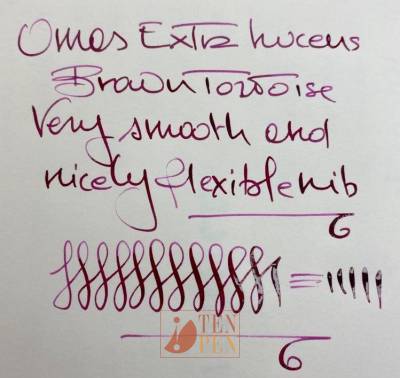 Omas Extra Lucens
Brown Tortoise
Very smooth and
nicely flexible nib
6
TEN
PEN
6